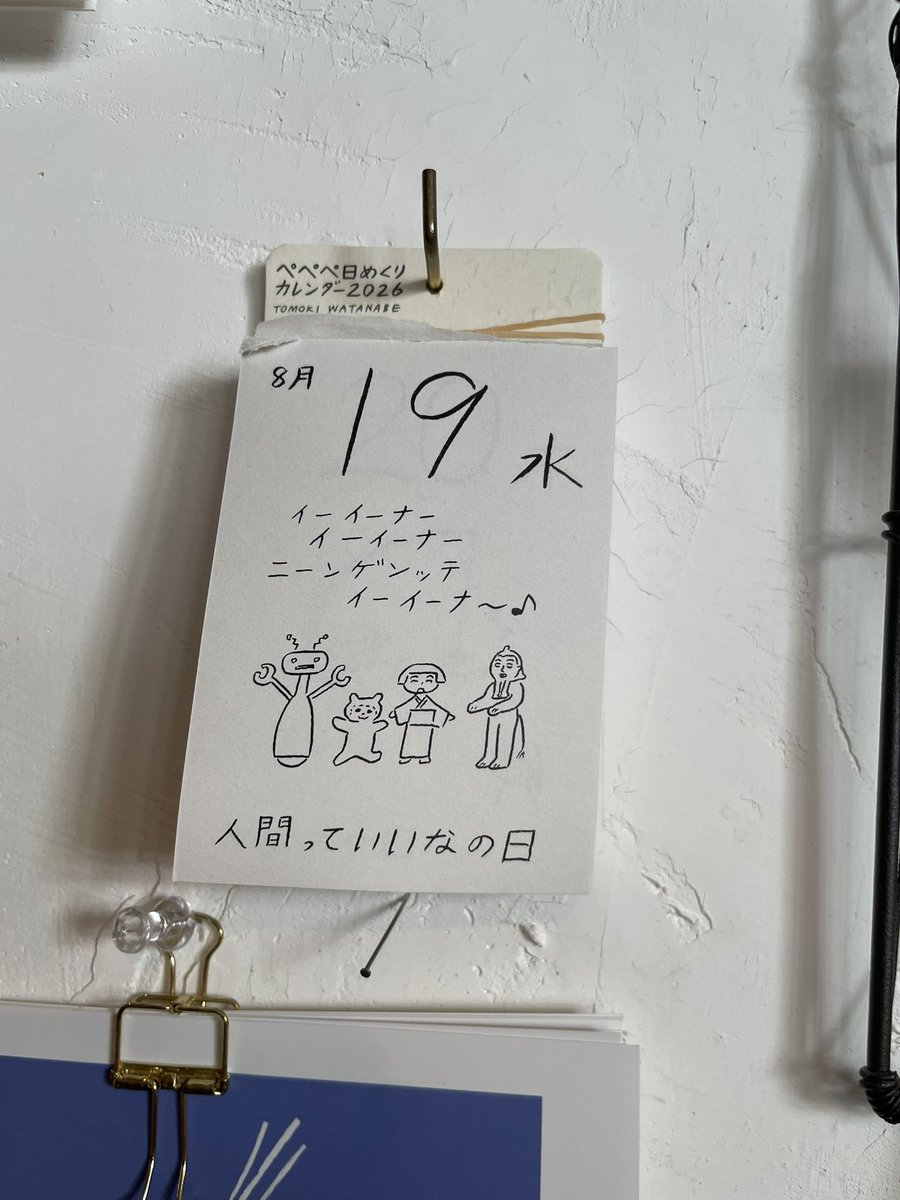 ぺぺぺ日めくり
カレンダー2026
TOMOKI WATANABE
8月 19 水
イーイーナー
イーイーナー
ニーンゲンッテ
イーイーナ〜♪
人間っていいなの日